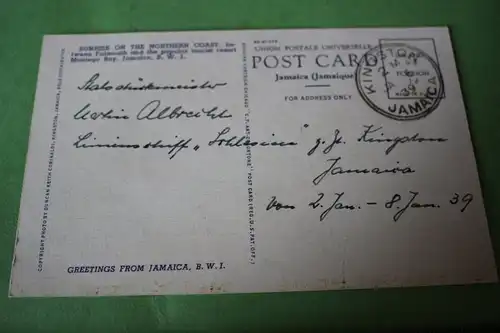 SUNRISE ON THE NORTHERN COAST, be-
tween Falmouth and the popular tourist resort
Montego Bay, Jamaica, B. W. I.
UNION POSTALE UNIVERSELLE
POST CARD
Jamaica (Jamaique
FOR ADDRESS ONLY
KINGSTON
JAMAICA
39
Stabsstückmeister
Martin Albrecht
Linienschiff „Schlesien" z. Zt. Kingston
Jamaica
von 2. Jan. - 8. Jan. 39
COPYRIGHT PHOTO BY DUNCAN KEITH CORINALDI, MONTEGO BAY, JAMAICA
GREETINGS FROM JAMAICA, B. W. I.